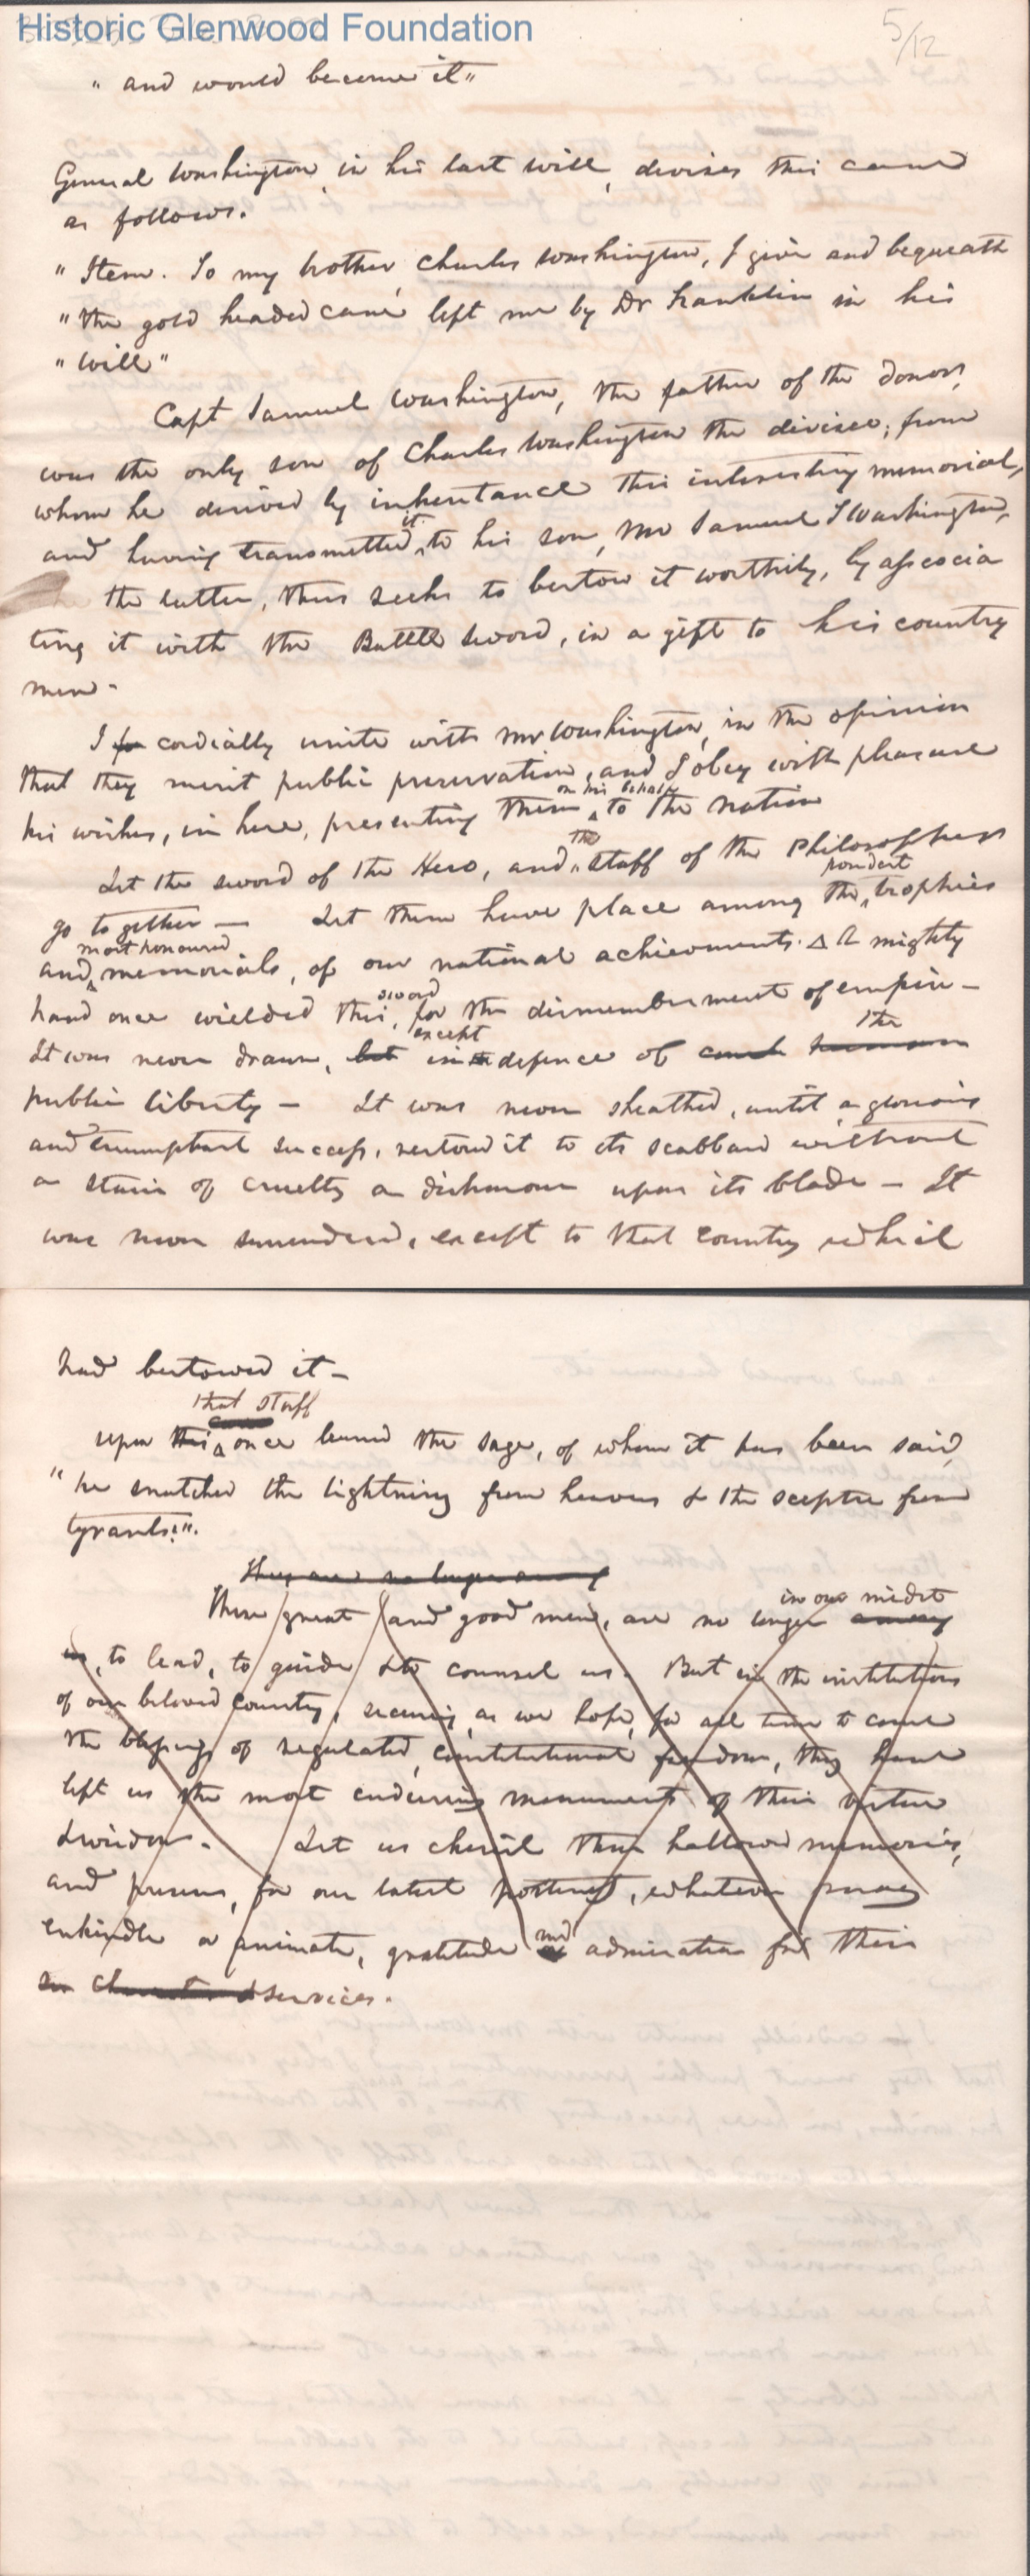 Historic Glenwood Foundation
5/12
" and would become it"
General Washington, in his last will, devises this cane
as follows.
" Item. To my brother, Charles Washington, I give and bequeath
" the gold headed cane left me by Dr Franklin in his
" will"
Capt Samuel Washington, the father of the donor,
was the only son of Charles Washington the devisee; from
whom he derived by inheritance this interesting memorial,
it
and having transmitted to his son, Mr Samuel T Washington,
the latter, thus seeks to bestow it worthily, by associa
ting it with the Battle sword, in a gift to his country
men-
I cordially unite with Mr Washington, in the opinion
that they merit public preservation, and I obey with pleasure
on his behalf
his wishes, in here, presenting them to the nation
the
Let the sword of the Hero, and staff of the Philosopher
proudest
go together — Let them have place among the trophies
most honoured
and memorials, of our national achievements. A mighty
sword
hand once wielded this, for the dismemberment of empire —
except the
It was never drawn, but in defence of
public liberty — It was never sheathed, until a glorious
and triumphant success, restored it to its scabbard without
a stain of cruelty or dishonour upon its blade — It
was never surrendered, except to that country which
had bestowed it —
that staff
cane
upon this once leaned the sage, of whom it has been said,
" he snatched the lightning from heaven & the sceptre from
tyrants!".
They are no longer among
in our midst
These great and good men, are no longer among
us, to lead, to guide & to counsel us. But in the institutions
of our beloved country, securing, as we hope, for all time to come
the blessings of regulated, constitutional freedom, they have
left us the most enduring monuments of their virtue
& wisdom. Let us cherish their hallowed memories,
and preserve, for our latest posterity, whatever may
and
enkindle or animate, gratitude admiration for their
services.